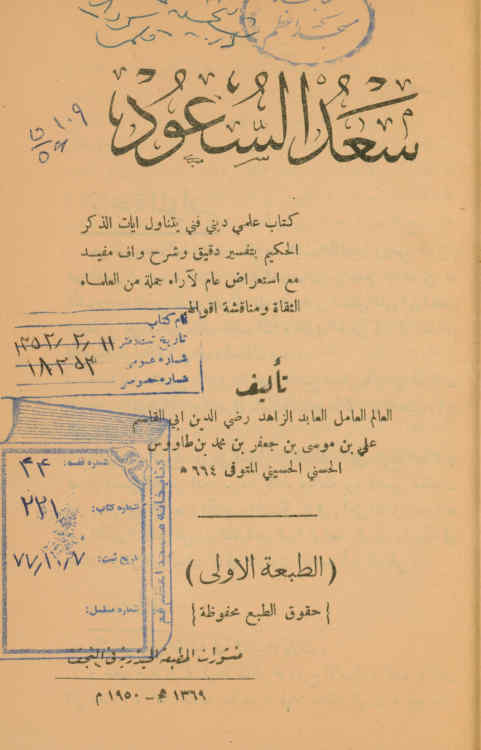 مسجد اعظم
١٠٩
سعد السعود
كتاب علمي ديني فني يتناول ايات الذكر
الحكيم بتفسير دقيق وشرح واف مفيد
مع استعراض عام لآراء جملة من العلماء
الثقاة ومناقشة اقوالهم
نام كتاب
تاريخ ثبت دفتر ١٣٥٢/٢/١١
شماره عمومى ١٨٣٥٣
شماره خصوصى
تأليف
العالم العامل العابد الزاهد رضي الدين ابي القاسم
علي بن موسى بن جعفر بن محمد بن طاووس
الحسني الحسيني المتوفى ٦٦٤ ه
كتابخانه مسجد اعظم قم
شماره قفسه: ۴۴
شماره كتاب: ۲۲۱
تاريخ ثبت: ۷۷/۱۰/۷
شماره مسلسل:
(الطبعة الاولى)
{ حقوق الطبع محفوظة }
منشورات المطبعة الحيدرية في النجف
١٣٦٩ ه - ١٩٥٠ م